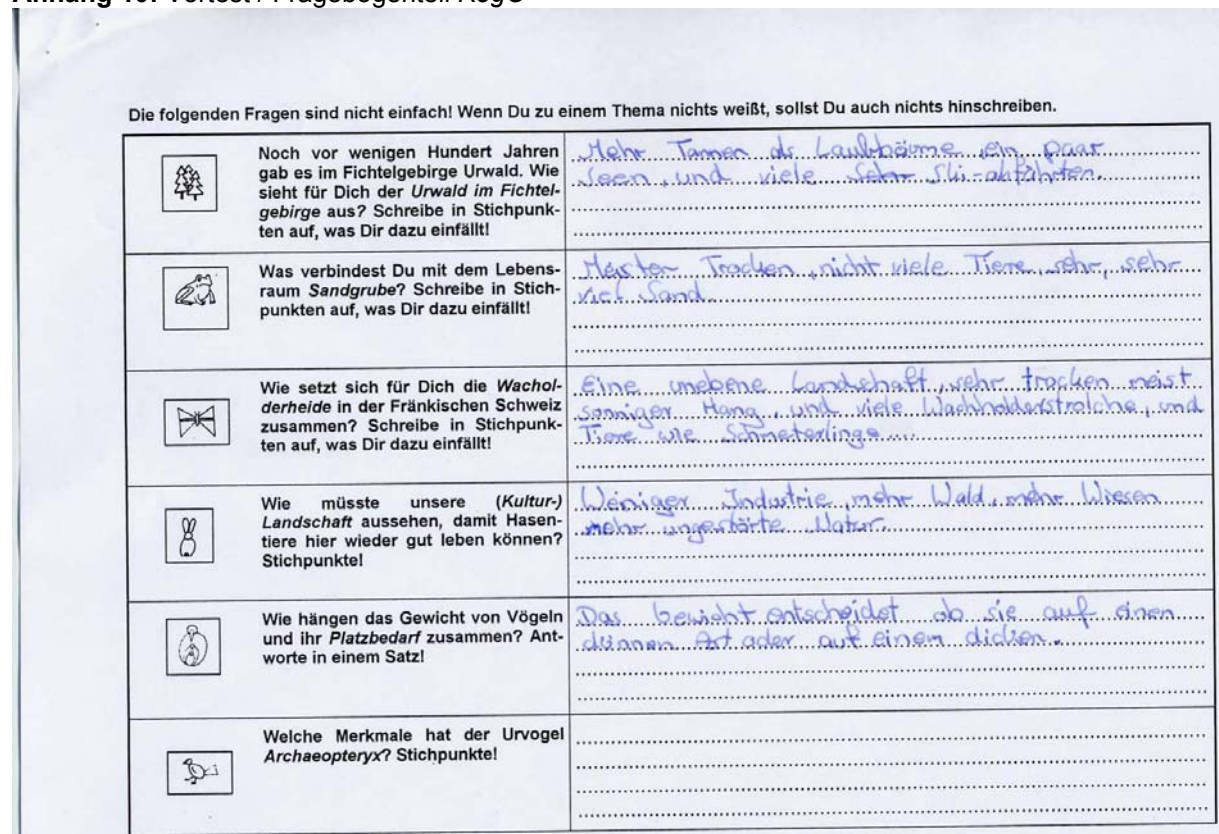 Anhang 10: Vortest / Fragebogenteil KogU
Die folgenden Fragen sind nicht einfach! Wenn Du zu einem Thema nichts weißt, sollst Du auch nichts hinschreiben.
Noch vor wenigen Hundert Jahren
gab es im Fichtelgebirge Urwald. Wie
sieht für Dich der Urwald im Fichtel-
gebirge aus? Schreibe in Stichpunk-
ten auf, was Dir dazu einfällt!
Mehr Tannen als Laubbäume, ein paar
Seen, und viele Ski-abfahrten.
Was verbindest Du mit dem Lebens-
raum Sandgrube? Schreibe in Stich-
punkten auf, was Dir dazu einfällt!
Trocken, nicht viele Tiere, sehr, sehr
viel Sand
Wie setzt sich für Dich die Wachol-
derheide in der Fränkischen Schweiz
zusammen? Schreibe in Stichpunk-
ten auf, was Dir dazu einfällt!
Eine unebene Landschaft, sehr trocken meist
sonniger Hang, und viele und
Tiere wie Schmeterlinge....
Wie müsste unsere (Kultur-)
Landschaft aussehen, damit Hasen-
tiere hier wieder gut leben können?
Stichpunkte!
Weniger Industrie, mehr Wald, mehr Wiesen
mehr ungestörte Natur.
Wie hängen das Gewicht von Vögeln
und ihr Platzbedarf zusammen? Ant-
worte in einem Satz!
Das Gewicht entscheidet ob sie auf einen
dünnen Ast oder auf einem dicken.
Welche Merkmale hat der Urvogel
Archaeopteryx? Stichpunkte!